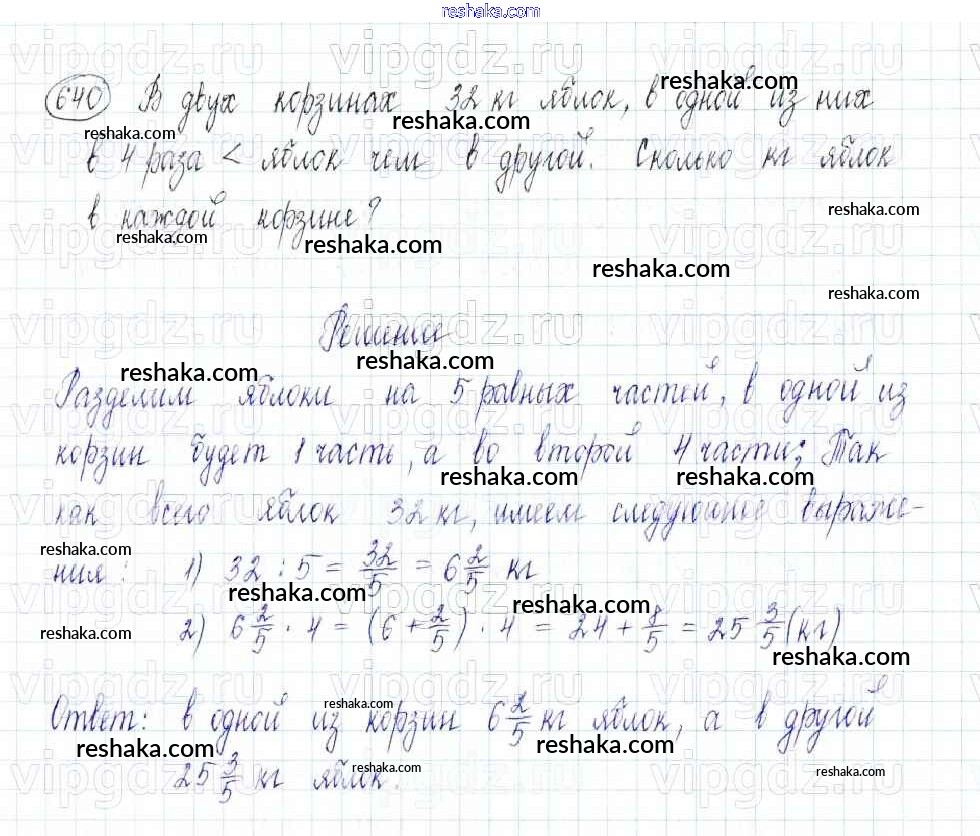 reshaka.com
640 В двух корзинах 32 кг яблок, в одной из них
в 4 раза < яблок чем в другой. Сколько кг яблок
в каждой корзине?
Решение
Разделим яблоки на 5 равных частей, в одной из
корзин будет 1 часть, а во второй 4 части; Так
как всего яблок 32 кг, имеем следующие выраже-
ния: 1) 32 : 5 = 32/5 = 6 2/5 кг
2) 6 2/5 · 4 = (6 + 2/5) · 4 = 24 + 8/5 = 25 3/5 (кг)
Ответ: в одной из корзин 6 2/5 кг яблок, а в другой
25 3/5 кг яблок.
vipgdz.ru
reshaka.com